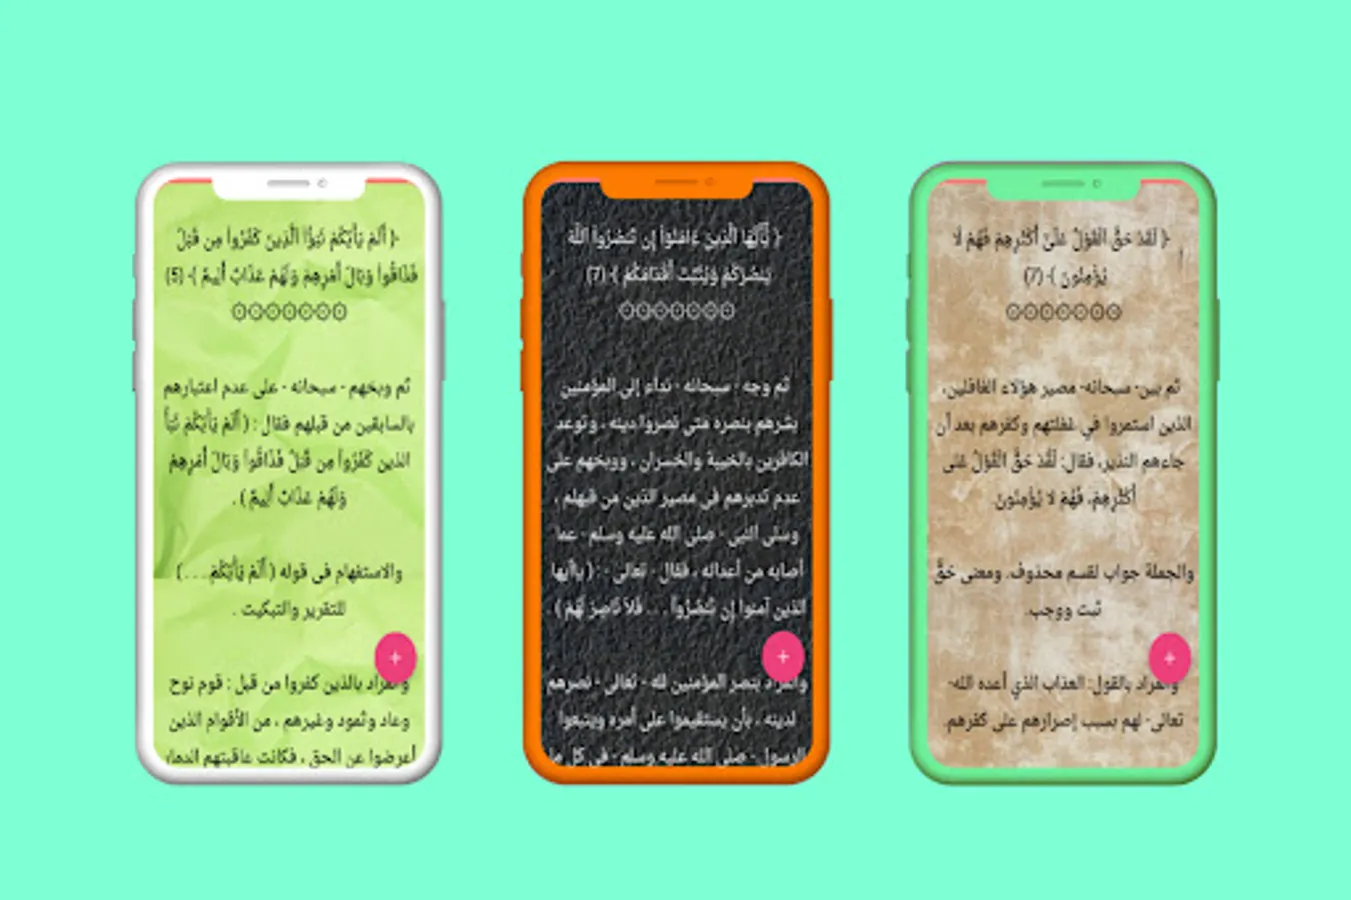 ﴿ أَلَمْ يَأْتِكُمْ نَبَؤُا الَّذِينَ كَفَرُوا مِن قَبْلُ
فَذَاقُوا وَبَالَ أَمْرِهِمْ وَلَهُمْ عَذَابٌ أَلِيمٌ ﴾ (5)
ثم وبخهم - سبحانه - على عدم اعتبارهم
بالسابقين من قبلهم فقال : ( أَلَمْ يَأْتِكُمْ نَبَأُ
الذين كَفَرُواْ مِن قَبْلُ فَذَاقُواْ وَبَالَ أَمْرِهِمْ
وَلَهُمْ عَذَابٌ أَلِيمٌ ) .
والاستفهام فى قوله ( أَلَمْ يَأْتِكُمْ. . . )
للتقرير والتبكيت .
والمراد بالذين كفروا من قبل : قوم نوح
وعاد وثمود وغيرهم ، من الأقوام الذين
أعرضوا عن الحق ، فكانت عاقبتهم
﴿ يَٰٓأَيُّهَا الَّذِينَ ءَامَنُوٓا إِن تَنصُرُوا اللَّهَ
يَنصُرْكُمْ وَيُثَبِّتْ أَقْدَامَكُمْ ﴾ (7)
ثم وجه - سبحانه - نداء إلى المؤمنين
بشرهم بنصره متى نصروا دينه ، وتوعد
الكافرين بالخيبة والخسران ، ووبخهم على
عدم تدبرهم فى مصير الذين من قبلهم ،
وسلى النبى - صلى الله عليه وسلم - عما
أصابه من أعدائه ، فقال - تعالى - : ( ياأيها
الذين آمنوا إِن تَنصُرُواْ . . . فَلاَ نَاصِرَ لَهُمْ ) .
والمراد بنصر المؤمنين لله - تعالى - نصرهم
لدينه ، بأن يستقيموا على أمره ويتبعوا
الرسول - صلى الله عليه وسلم - فى كل ما
﴿ لَقَدْ حَقَّ الْقَوْلُ عَلَىٰٓ أَكْثَرِهِمْ فَهُمْ لَا
يُؤْمِنُونَ ﴾ (7)
ثم بين- سبحانه- مصير هؤلاء الغافلين،
الذين استمروا في غفلتهم وكفرهم بعد أن
جاءهم النذير، فقال: لَقَدْ حَقَّ الْقَوْلُ عَلى
أَكْثَرِهِمْ، فَهُمْ لا يُؤْمِنُونَ
والجملة جواب لقسم محذوف. ومعنى حَقَّ
ثبت ووجب.
والمراد بالقول: العذاب الذي أعده الله-
تعالى- لهم بسبب إصرارهم على كفرهم.